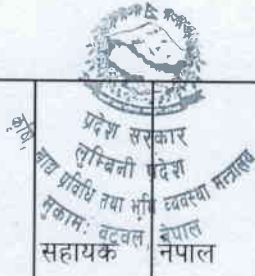 प्रदेश सरकार
लुम्बिनी प्रदेश
कृषि, खाद्य प्रविधि तथा भूमि व्यवस्था मन्त्रालय
मुकाम: बुटवल, नेपाल
सहायक नेपाल